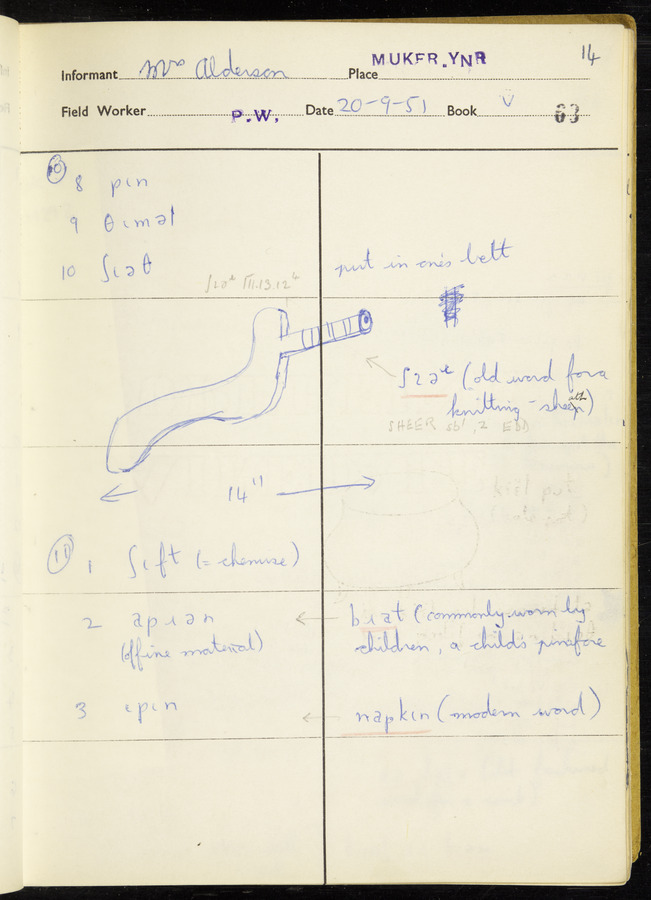 14
Informant Mrs Alderson Place MUKER, YNR
Field Worker P.W. Date 20-9-51 Book V 63
10
8 pɩn
9 θɩməl
10 ʃɩəθ
put in one's belt
ʃɩəʴ (old word for a
knitting-sheath)
SHEER sb¹, 2 EDD
14"
11
1 ʃɩft (= chemise)
2 apɹən
(of fine material)
← bɹat (commonly worn by
children, a child's pinafore
3 ɩpɩn
← napkɩn (modern word)